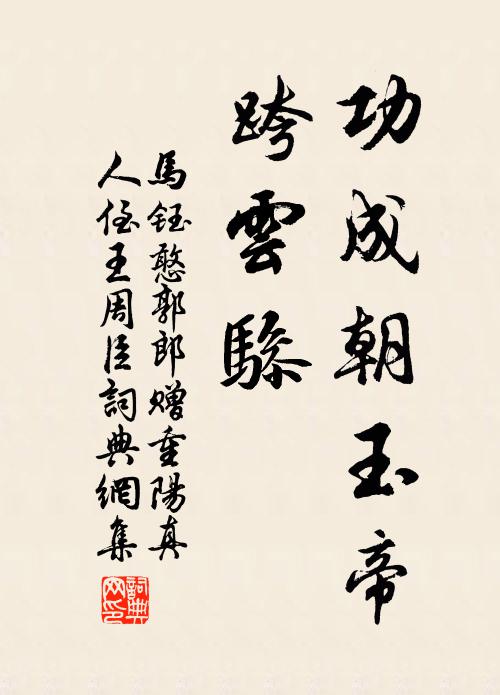 功成朝玉帝
跨雲驂
馬鈺憨郭郎贈重陽真
人侄王周臣詞典網集
詞典網印